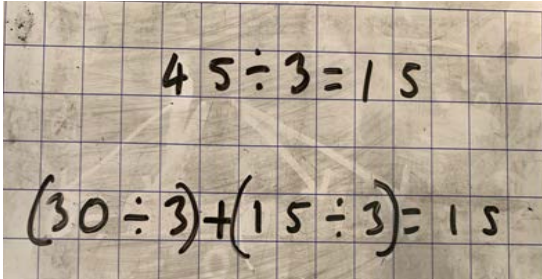 45÷3=15
(30÷3)+(15÷3)=15